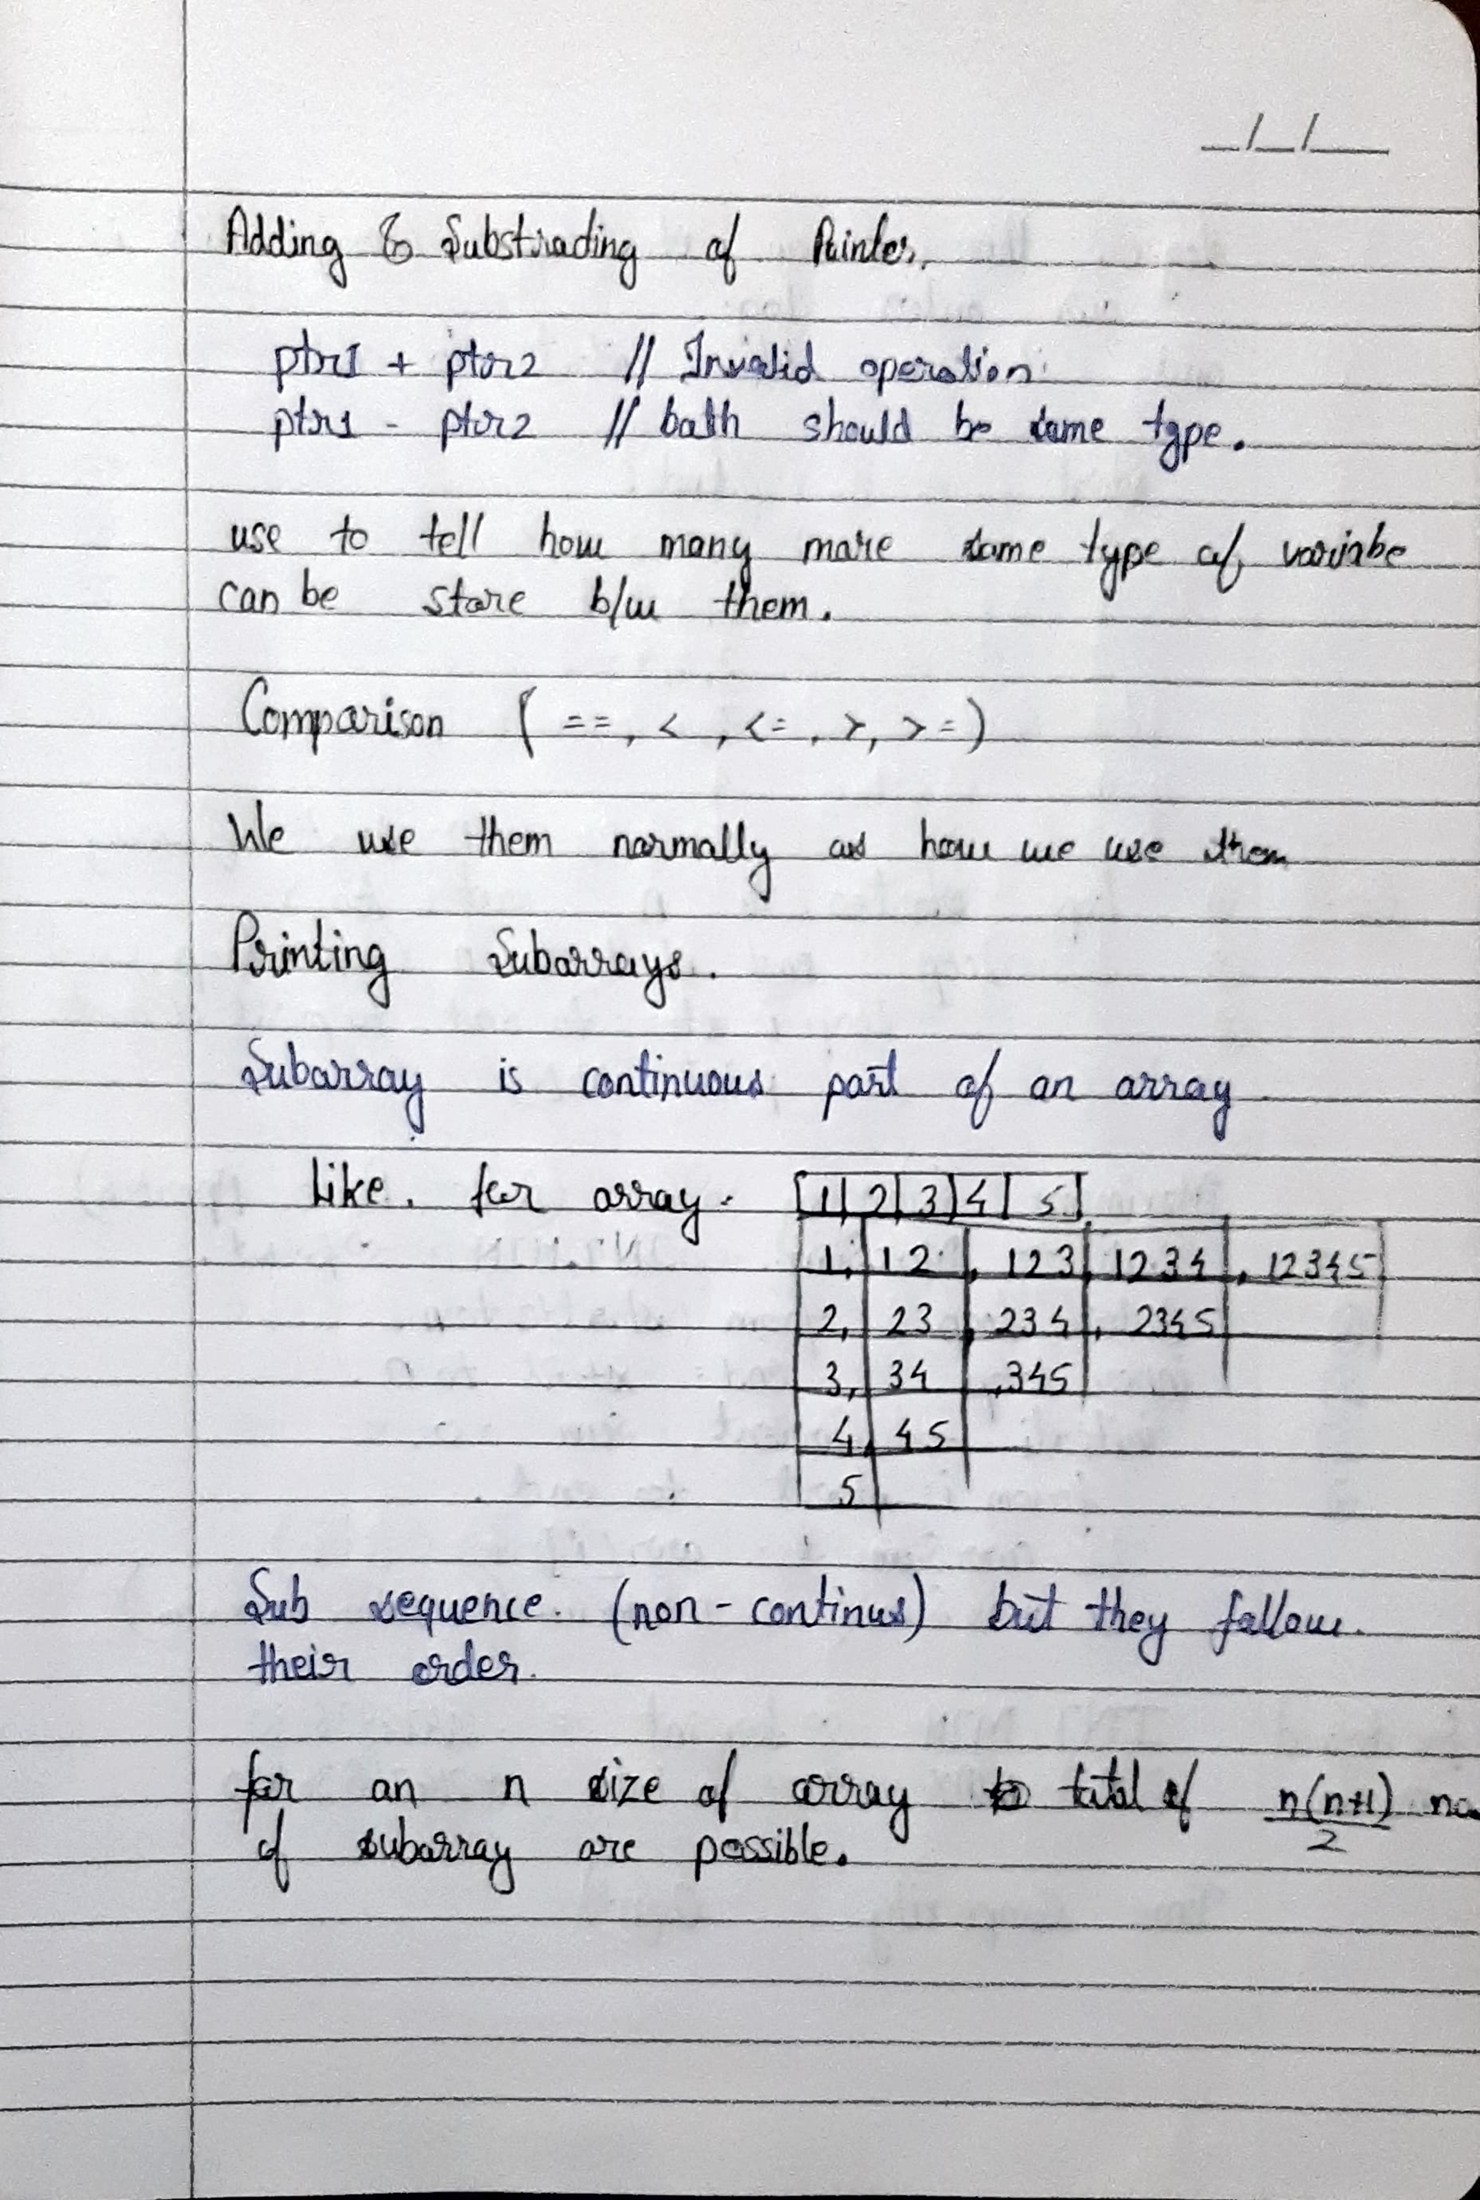 _/_/__
Adding & Substrading of Pointer.
ptr1 + ptr2 // Invalid operation
ptr1 - ptr2 // both should be same type.
use to tell how many more same type of variabe
can be store b/w them.
Comparison ( ==, <, <=, >, >=)
We use them normally as how we use them
Printing Subarrays.
Subarray is continuous part of an array
Like. for array. 1 2 3 4 5
1, 12, 123, 1234, 12345
2, 23, 234, 2345
3, 34, 345
4, 45
5
Sub sequence. (non-continus) but they follow.
their order.
for an n size of array total of n(n+1)/2 no
of subarray are possible.